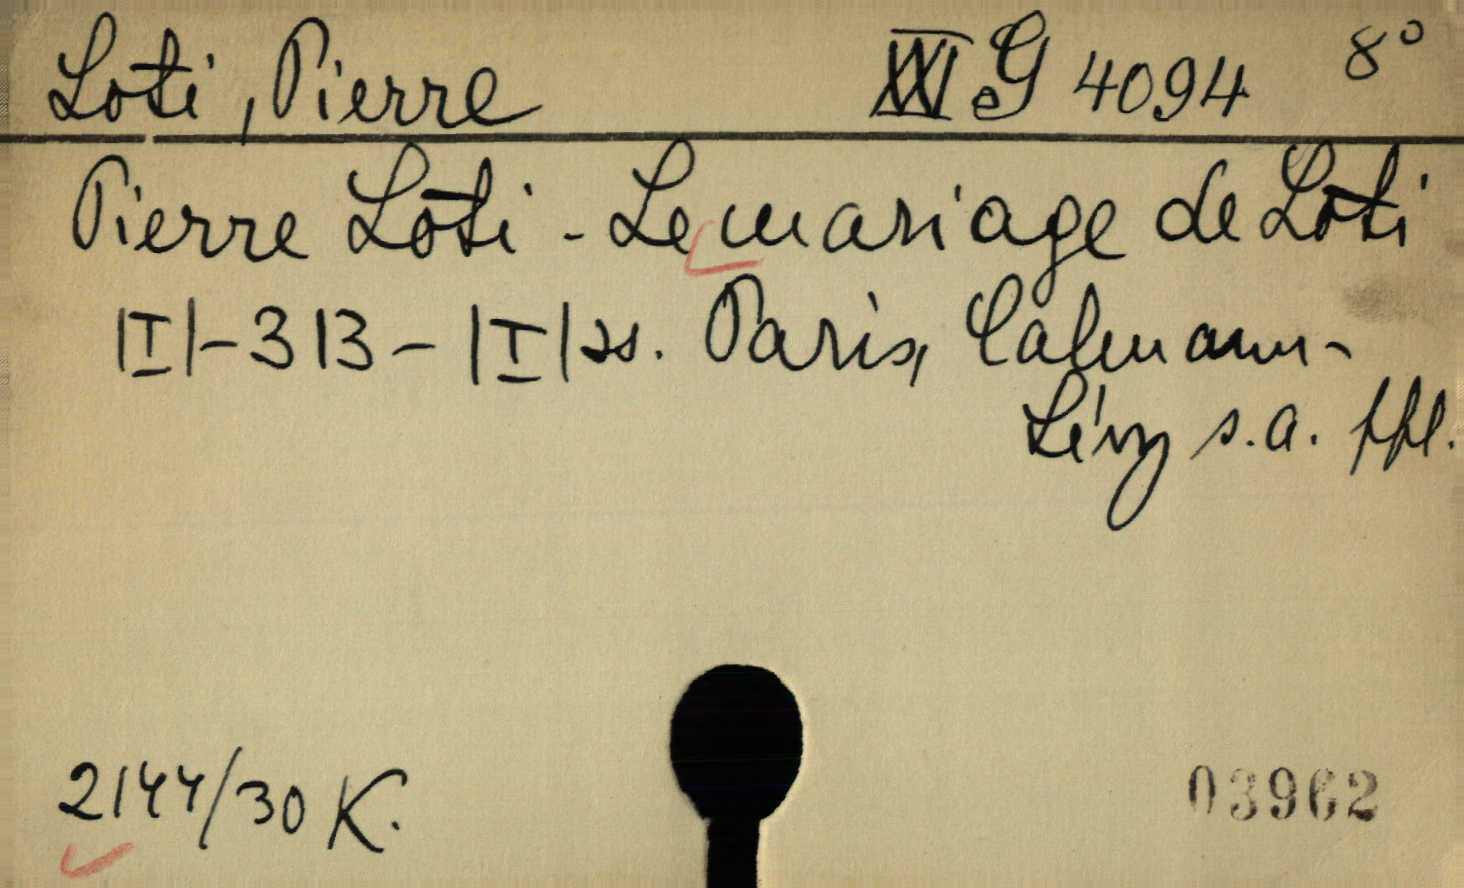 Loti, Pierre XXI eG 4094 8°
Pierre Loti - Le mariage de Loti
|I|-313-|I| s. Paris, Calmann-
Lévy s.a. ffl.
2144/30 K.
03962